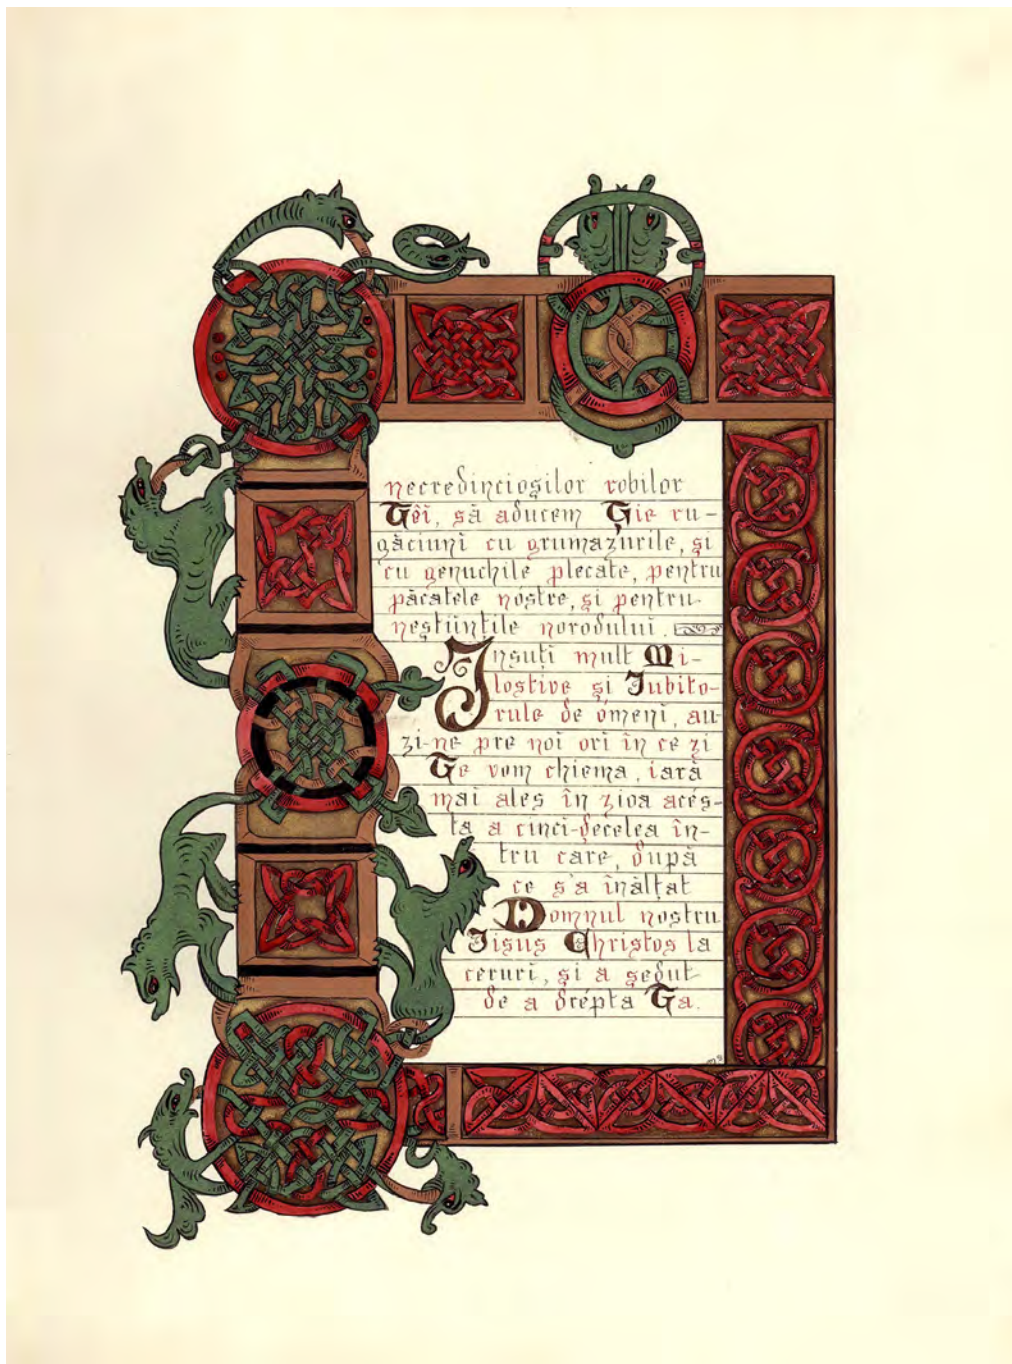 necredincioşilor robilor
Têĭ, să aducem Ţie ru-
găciunĭ cu grumazurile, şi
cu genuchile plecate, pentru
păcatele nóstre, şi pentru
neştiinţile norodului.
Insuţi mult Mi-
lostive şi Iubito-
rule de ómenĭ, au-
zi-ne pre noi orĭ în ce zi
Te vom chiema, iară
maĭ ales în zioa acés-
ta a cincĭ-decelea în-
tru care, după
ce s'a înălţat
Domnul nostru
Iisus Christos la
cerurĭ, şi a şedut
de a drépta Ta.